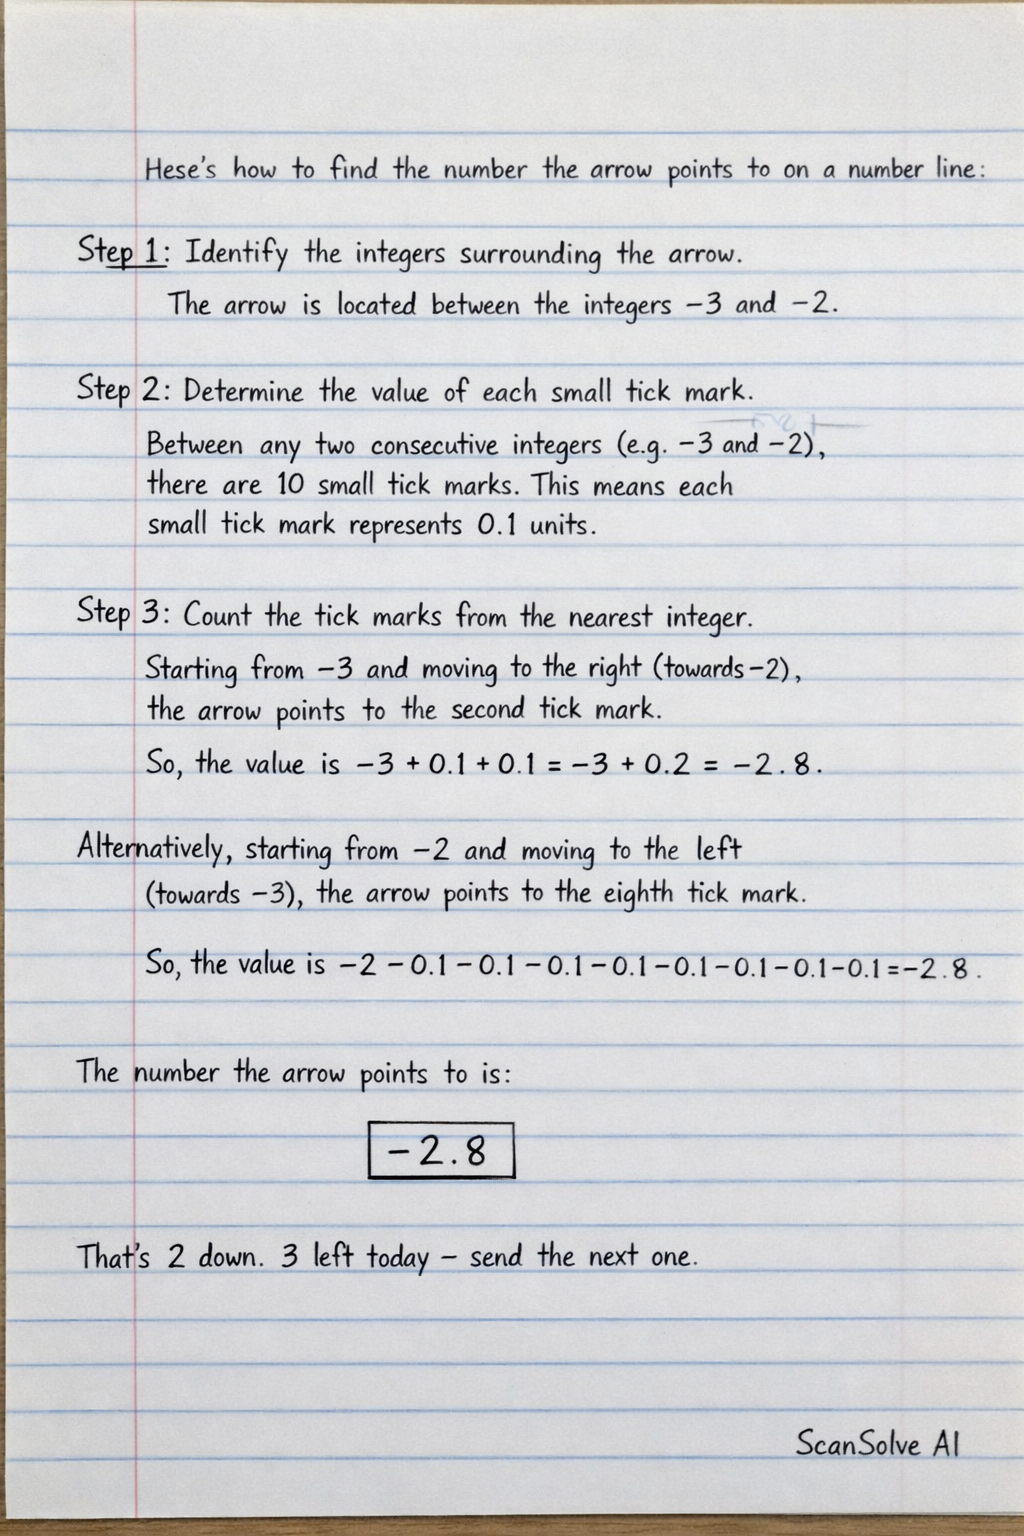 Hese's how to find the number the arrow points to on a number line:
Step 1: Identify the integers surrounding the arrow.
The arrow is located between the integers −3 and −2.
Step 2: Determine the value of each small tick mark.
Between any two consecutive integers (e.g. −3 and −2),
there are 10 small tick marks. This means each
small tick mark represents 0.1 units.
Step 3: Count the tick marks from the nearest integer.
Starting from −3 and moving to the right (towards −2),
the arrow points to the second tick mark.
So, the value is −3 + 0.1 + 0.1 = −3 + 0.2 = −2.8.
Alternatively, starting from −2 and moving to the left
(towards −3), the arrow points to the eighth tick mark.
So, the value is −2 − 0.1 − 0.1 − 0.1 − 0.1 − 0.1 − 0.1 − 0.1 − 0.1 = −2.8.
The number the arrow points to is:
−2.8
That's 2 down. 3 left today – send the next one.
ScanSolve AI